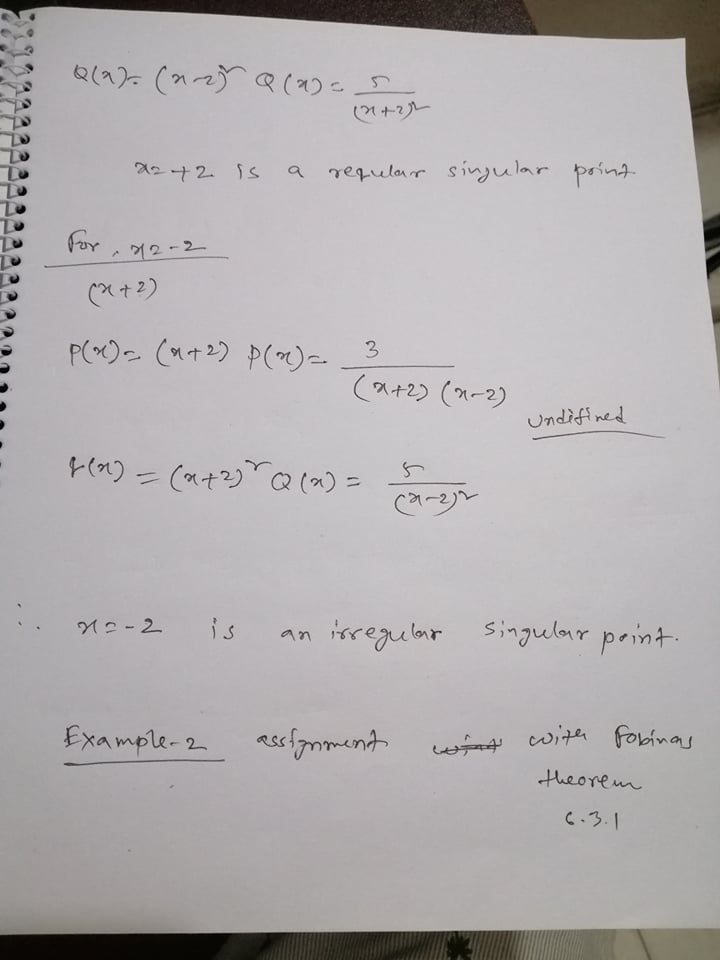 Q(x) = (x-2)² Q(x) = 5/(x+2)²
x = +2 is a regular singular point.
For, x = -2
(x+2)
P(x) = (x+2) P(x) = 3/((x+2)(x-2))
undifined
q(x) = (x+2)² Q(x) = 5/(x-2)²
∴ x = -2 is an irregular singular point.
Example-2 assignment with Fobinas
theorem
6.3.1